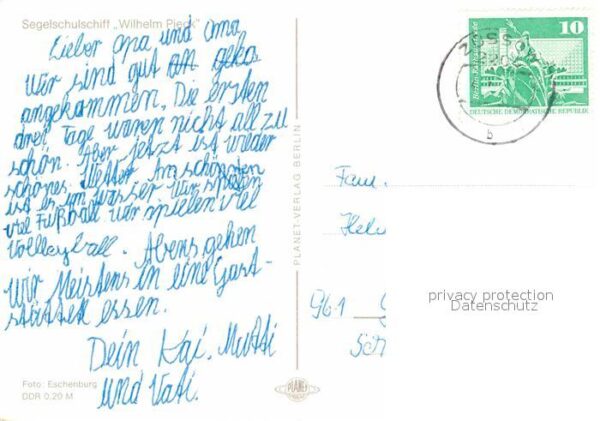 Segelschulschiff „Wilhelm Pieck"
Lieber Opa und Oma
wir sind gut an geko
angekommen. Die ersten
drei Tage waren nicht all zu
schön. Aber jetzt ist wieder
schönes Wetter Am schönsten
ist es um wasser wir spielen
viel Fußball wir spielen viel
Volleyball. Abens gehen
wir Meistens in eine Gast-
stätte essen.
Dein Kai, Mutti
und Vati.
Foto: Eschenburg
DDR 0,20 M
PLANET-VERLAG BERLIN
PLANET
10
DEUTSCHE DEMOKRATISCHE REPUBLIK
b
Fam.
961
privacy protection
Datenschutz